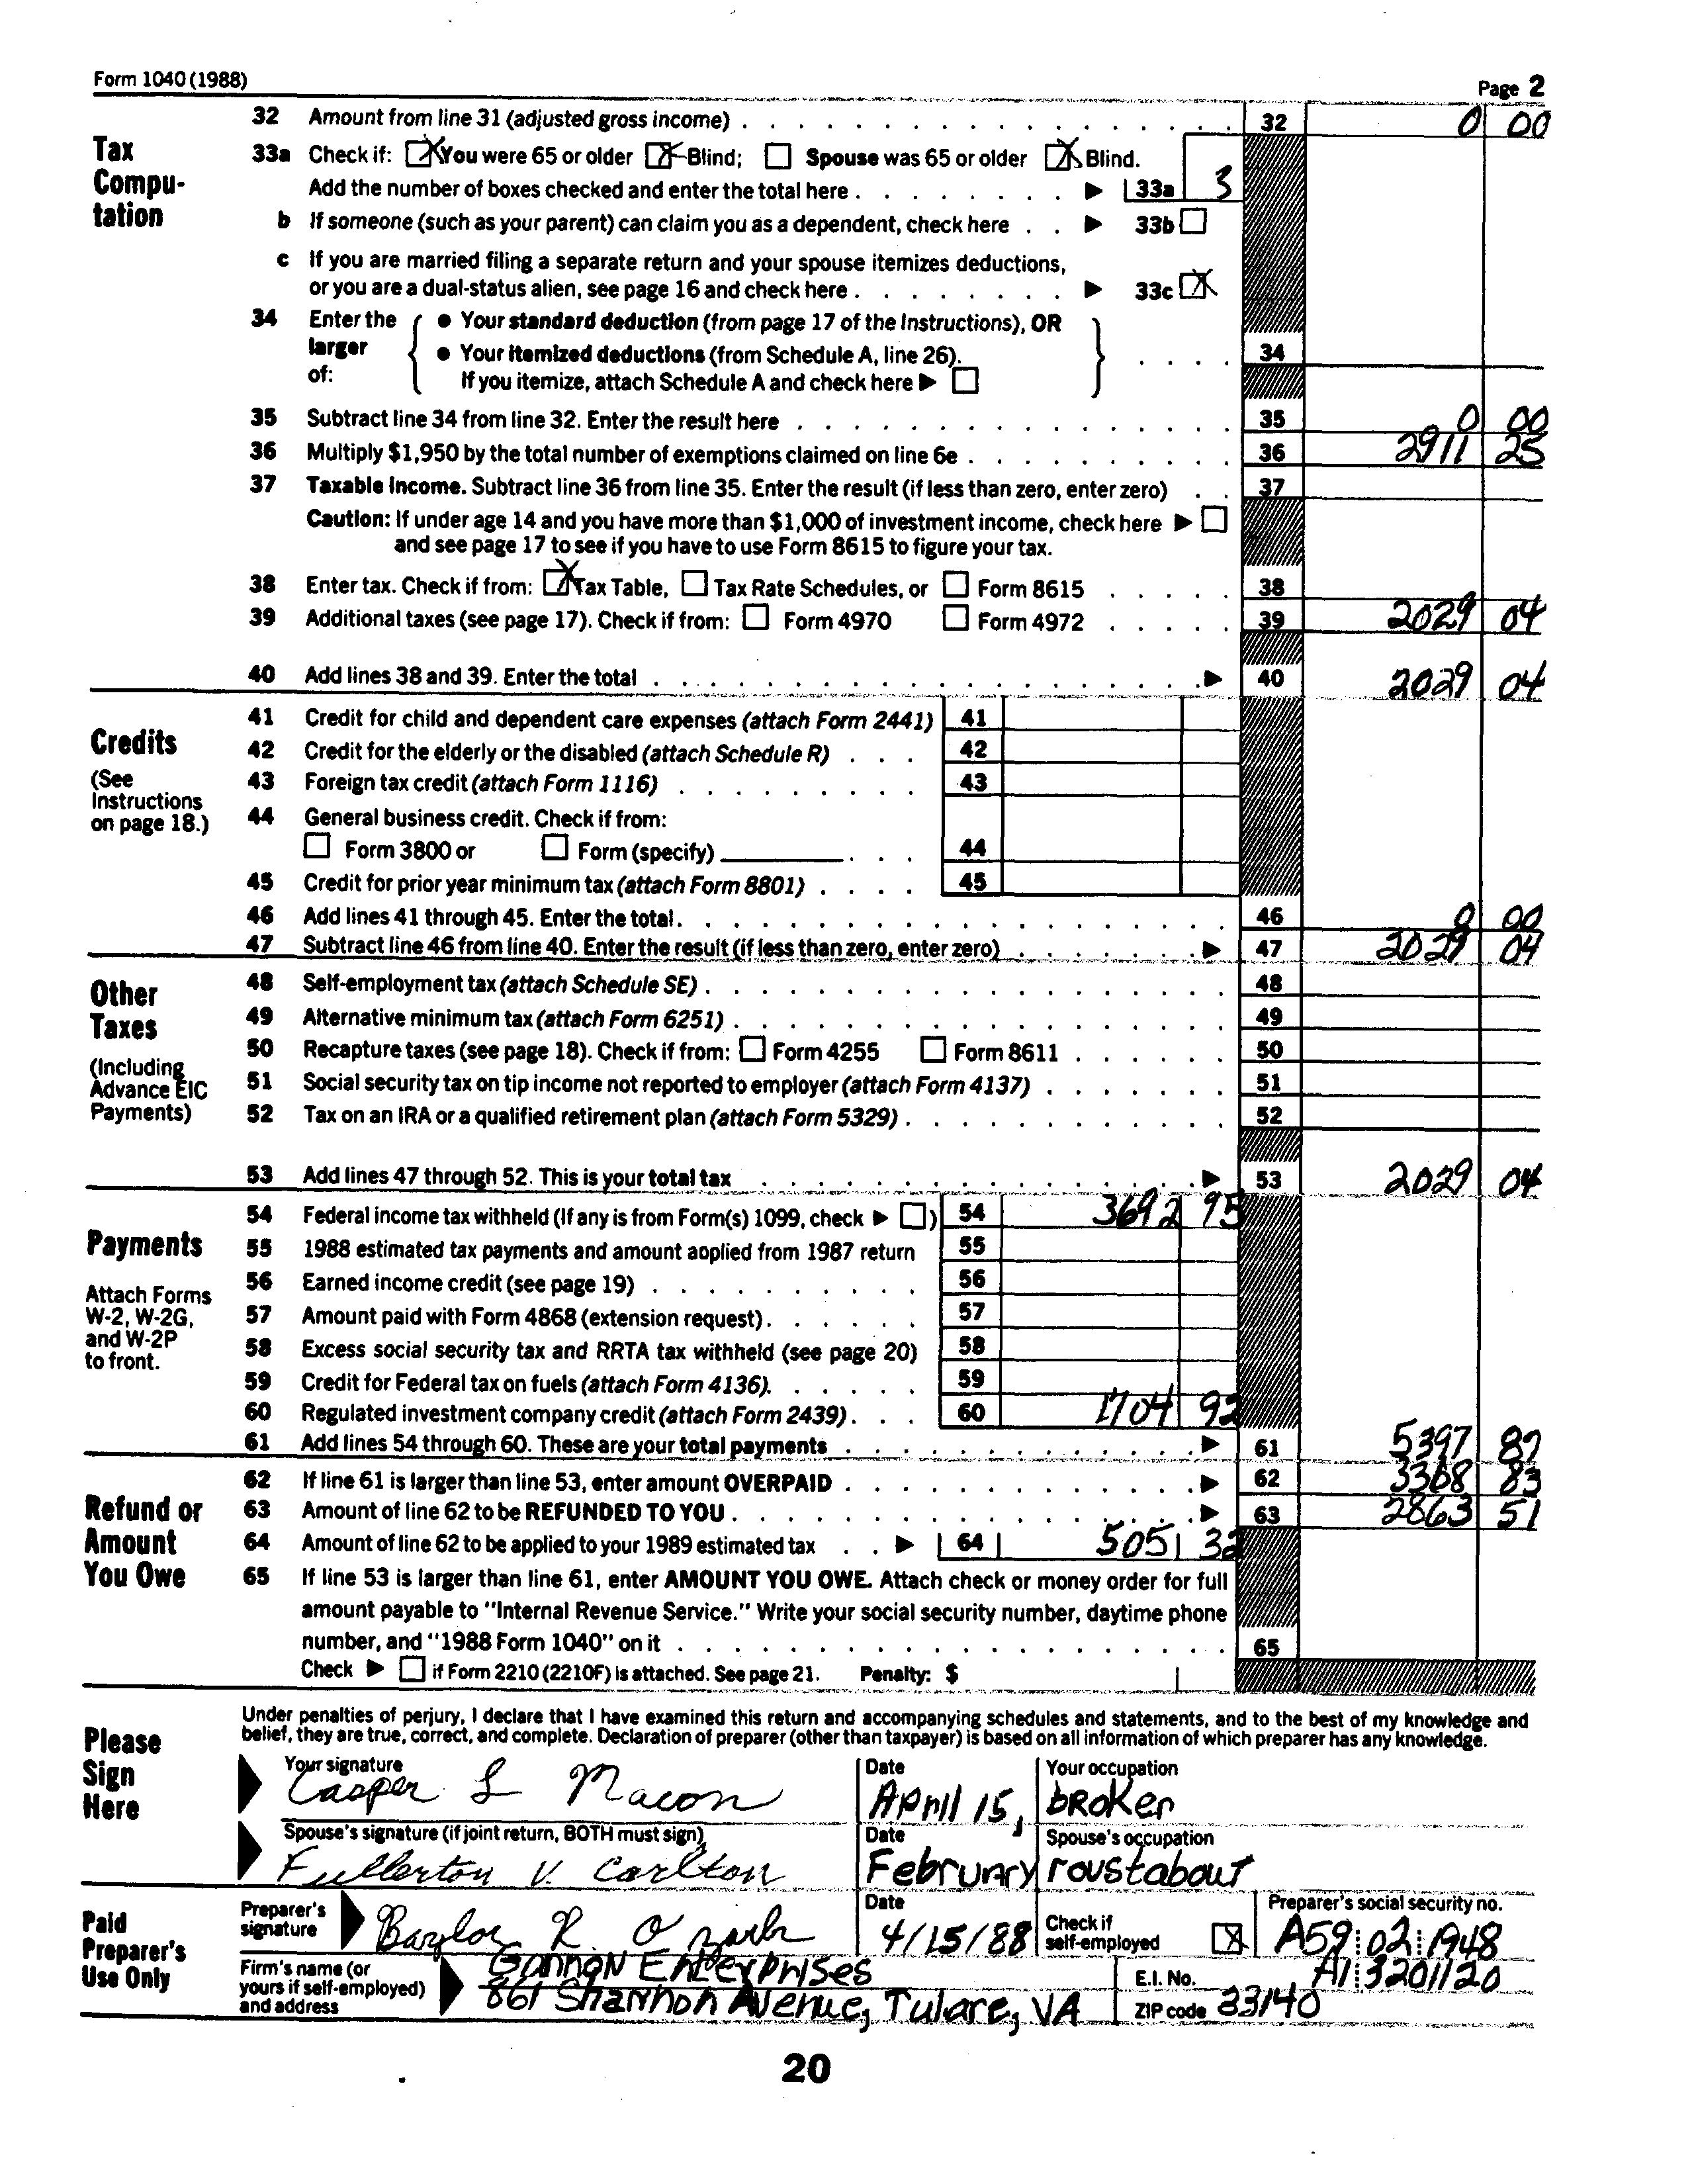 Form 1040 (1988)
Page 2
Tax Compu-tation
32 Amount from line 31 (adjusted gross income) 32 0 00
33a Check if: ☒ You were 65 or older ☒ Blind; ☐ Spouse was 65 or older ☒ Blind.
Add the number of boxes checked and enter the total here ▶ 33a 3
b If someone (such as your parent) can claim you as a dependent, check here ▶ 33b ☐
c If you are married filing a separate return and your spouse itemizes deductions,
or you are a dual-status alien, see page 16 and check here ▶ 33c ☒
34 Enter the larger of: ● Your standard deduction (from page 17 of the Instructions), OR
● Your itemized deductions (from Schedule A, line 26). 34
If you itemize, attach Schedule A and check here ▶ ☐
35 Subtract line 34 from line 32. Enter the result here 35 0 00
36 Multiply $1,950 by the total number of exemptions claimed on line 6e 36 2911 25
37 Taxable income. Subtract line 36 from line 35. Enter the result (if less than zero, enter zero) 37
Caution: If under age 14 and you have more than $1,000 of investment income, check here ▶ ☐
and see page 17 to see if you have to use Form 8615 to figure your tax.
38 Enter tax. Check if from: ☒ Tax Table, ☐ Tax Rate Schedules, or ☐ Form 8615 38
39 Additional taxes (see page 17). Check if from: ☐ Form 4970 ☐ Form 4972 39 2029 04
40 Add lines 38 and 39. Enter the total ▶ 40 2029 04
Credits
(See Instructions on page 18.)
41 Credit for child and dependent care expenses (attach Form 2441) 41
42 Credit for the elderly or the disabled (attach Schedule R) 42
43 Foreign tax credit (attach Form 1116) 43
44 General business credit. Check if from:
☐ Form 3800 or ☐ Form (specify) 44
45 Credit for prior year minimum tax (attach Form 8801) 45
46 Add lines 41 through 45. Enter the total 46 0 00
47 Subtract line 46 from line 40. Enter the result (if less than zero, enter zero) ▶ 47 2029 04
Other Taxes
(Including Advance EIC Payments)
48 Self-employment tax (attach Schedule SE) 48
49 Alternative minimum tax (attach Form 6251) 49
50 Recapture taxes (see page 18). Check if from: ☐ Form 4255 ☐ Form 8611 50
51 Social security tax on tip income not reported to employer (attach Form 4137) 51
52 Tax on an IRA or a qualified retirement plan (attach Form 5329) 52
53 Add lines 47 through 52. This is your total tax ▶ 53 2029 04
Payments
Attach Forms W-2, W-2G, and W-2P to front.
54 Federal income tax withheld (If any is from Form(s) 1099, check ▶ ☐) 54 3692 95
55 1988 estimated tax payments and amount applied from 1987 return 55
56 Earned income credit (see page 19) 56
57 Amount paid with Form 4868 (extension request) 57
58 Excess social security tax and RRTA tax withheld (see page 20) 58
59 Credit for Federal tax on fuels (attach Form 4136) 59
60 Regulated investment company credit (attach Form 2439) 60 1704 92
61 Add lines 54 through 60. These are your total payments ▶ 61 5397 87
Refund or Amount You Owe
62 If line 61 is larger than line 53, enter amount OVERPAID ▶ 62 3368 83
63 Amount of line 62 to be REFUNDED TO YOU ▶ 63 2863 51
64 Amount of line 62 to be applied to your 1989 estimated tax ▶ 64 505 32
65 If line 53 is larger than line 61, enter AMOUNT YOU OWE. Attach check or money order for full
amount payable to "Internal Revenue Service." Write your social security number, daytime phone
number, and "1988 Form 1040" on it 65
Check ▶ ☐ if Form 2210 (2210F) is attached. See page 21. Penalty: $
Please Sign Here
Under penalties of perjury, I declare that I have examined this return and accompanying schedules and statements, and to the best of my knowledge and
belief, they are true, correct, and complete. Declaration of preparer (other than taxpayer) is based on all information of which preparer has any knowledge.
Your signature Date Your occupation
Casper L Macon April 15, broker
Spouse's signature (if joint return, BOTH must sign) Date Spouse's occupation
Fullerton V. Carlton February roustabout
Paid Preparer's Use Only
Preparer's signature Baylor R. Ozark Date 4/15/88 Check if self-employed ☒ Preparer's social security no. A59 02 1948
Firm's name (or yours if self-employed) and address Gannon Enterprises E.I. No. A1 3201120
861 Shannon Avenue, Tulare, VA ZIP code 33140
20